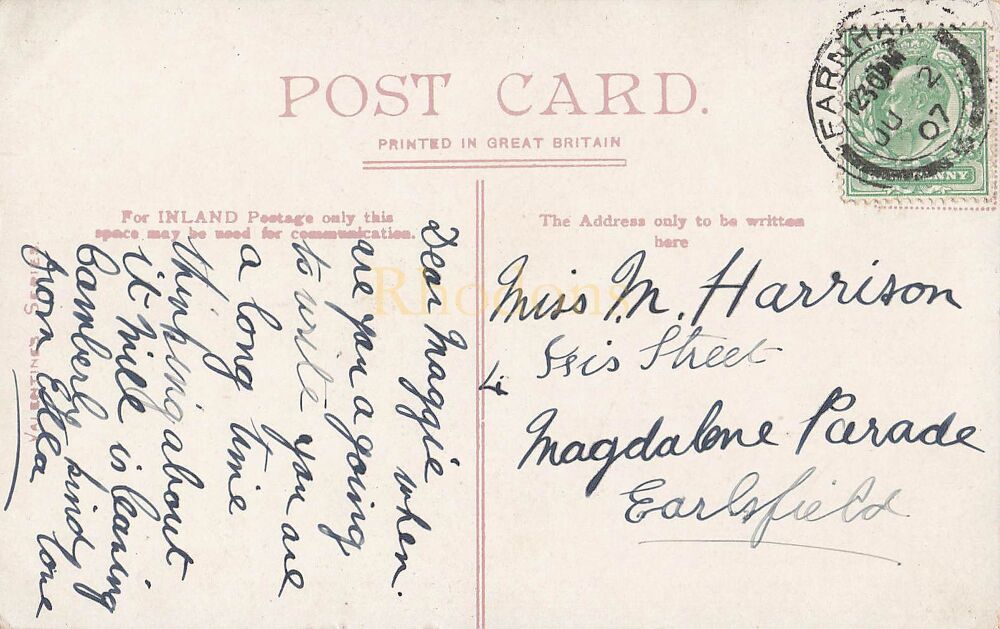 POST CARD.
PRINTED IN GREAT BRITAIN
For INLAND Postage only this
space may be used for communication.
The Address only to be written
here
VALENTINES SERIES
FARNHAM
1230PM
JU 2
07
HALFPENNY
Rhodons
Dear Maggie when.
are you a going
to write you are
a long time
thinking about
it Mill is leaving
Camberly kindy
from Edea love
Miss M. Harrison
4 Isis Street
Magdalene Parade
Earlsfield